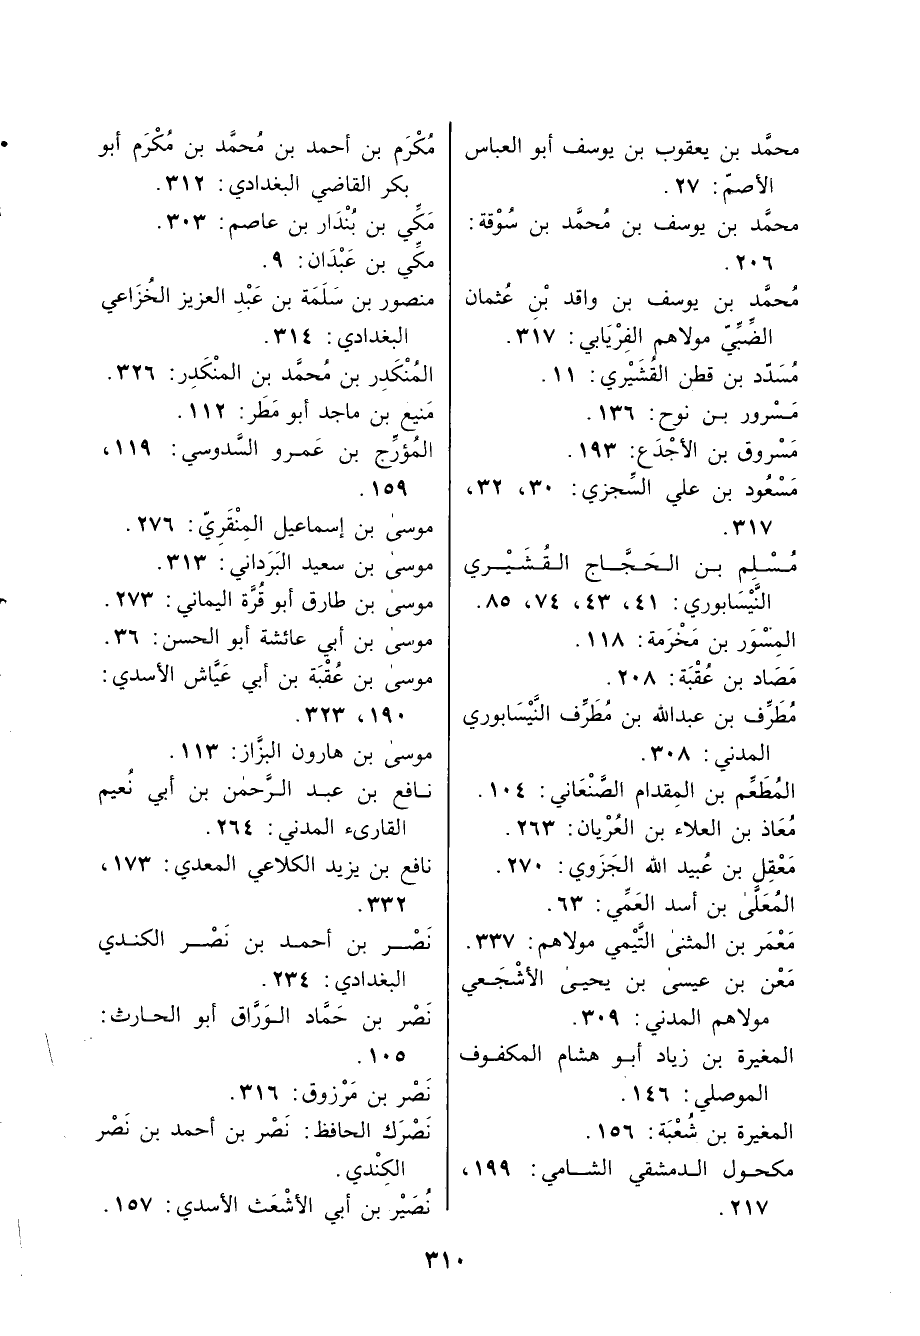 محمَّد بن يعقوب بن يوسف أبو العباس
الأصمّ: ٢٧.
محمَّد بن يوسف بن مُحمَّد بن سُوْقة:
٢٠٦.
مُحمَّد بن يوسف بن واقد بْن عُثمان
الضِّبِّيّ مولاهم الفِرْيَابي: ٣١٧.
مُسَدّد بن قطن القُشَيْري: ١١.
مَسْرور بـن نوح: ١٣٦.
مَسْروق بن الأجْدَع: ١٩٣.
مَسْعُود بن علي السِّجزي: ٣٠، ٣٢،
٣١٧.
مُسْـلِم بـن الـحَـجَّـاج الـقُـشَـيْـري
النَّيْسَابوري: ٤١، ٤٣، ٧٤، ٨٥.
المِسْوَر بن مَخْرَمة: ١١٨.
مَصَاد بن عُقْبَة: ٢٠٨.
مُطَرِّف بن عبدالله بن مُطَرِّف النَّيْسَابوري
المدني: ٣٠٨.
المُطَعَّم بن المِقدام الصَّنْعَاني: ١٠٤.
مُعَاذ بن العلاء بن العُرْيان: ٢٦٣.
مَعْقِل بن عُبيد الله الجَزَوي: ٢٧٠.
المُعَلَّىٰ بن أسد العَمِّي: ٦٣.
مَعْمَر بن المثنىٰ التَّيْمي مولاهم: ٣٣٧.
مَعْن بن عيسىٰ بن يحيىٰ الأشْجَـعي
مولاهم المدني: ٣٠٩.
المغيرة بن زياد أبـو هشام المكفـوف
الموصلي: ١٤٦.
المغيرة بن شُعْبَة: ١٥٦.
مكحـول الـدمشقي الشـامي: ١٩٩،
٢١٧.
مُكْرَم بن أحمد بن مُحمَّد بن مُكْرَم أبو
بكر القاضي البغدادي: ٣١٢.
مَكِّي بن بُنْدَار بن عاصم: ٣٠٣.
مكِّي بن عَبْدَان: ٩.
منصور بن سَلَمَة بن عَبْد العزيز الخُزَاعي
البغدادي: ٣١٤.
المُنْكَدِر بن مُحمَّد بن المنْكَدِر: ٣٢٦.
مَنيع بن ماجد أبو مَطَر: ١١٢.
المُؤرِّج بن عَمـرو السَّدوسي: ١١٩،
١٥٩.
موسىٰ بن إسماعيل المِنْقَرِيّ: ٢٧٦.
موسىٰ بن سعيد البَرَداني: ٣١٣.
موسىٰ بن طارق أبو قُرَّة اليماني: ٢٧٣.
موسىٰ بن أبي عائشة أبو الحسن: ٣٦.
موسىٰ بن عُقْبَة بن أبي عَيَّاش الأسدي:
١٩٠، ٣٢٣.
موسىٰ بن هارون البزَّاز: ١١٣.
نـافع بن عبـد الـرَّحمٰن بن أبي نُعيم
القارىء المدني: ٢٦٤.
نافع بن يزيد الكلاعي المعدي: ١٧٣،
٣٣٢.
نَصْـر بن أحمـد بن نَصْـر الكنـدي
البغدادي: ٢٣٤.
نَصْر بن حَمَّاد الـوَرَّاق أبو الحـارث:
١٠٥.
نَصْر بن مَرْزوق: ٣١٦.
نَصْرَك الحافظ: نَصْر بن أحمد بن نَصْر
الكِنْدي.
نُصَيْر بن أبي الأشْعَث الأسدي: ١٥٧.
٣١٠